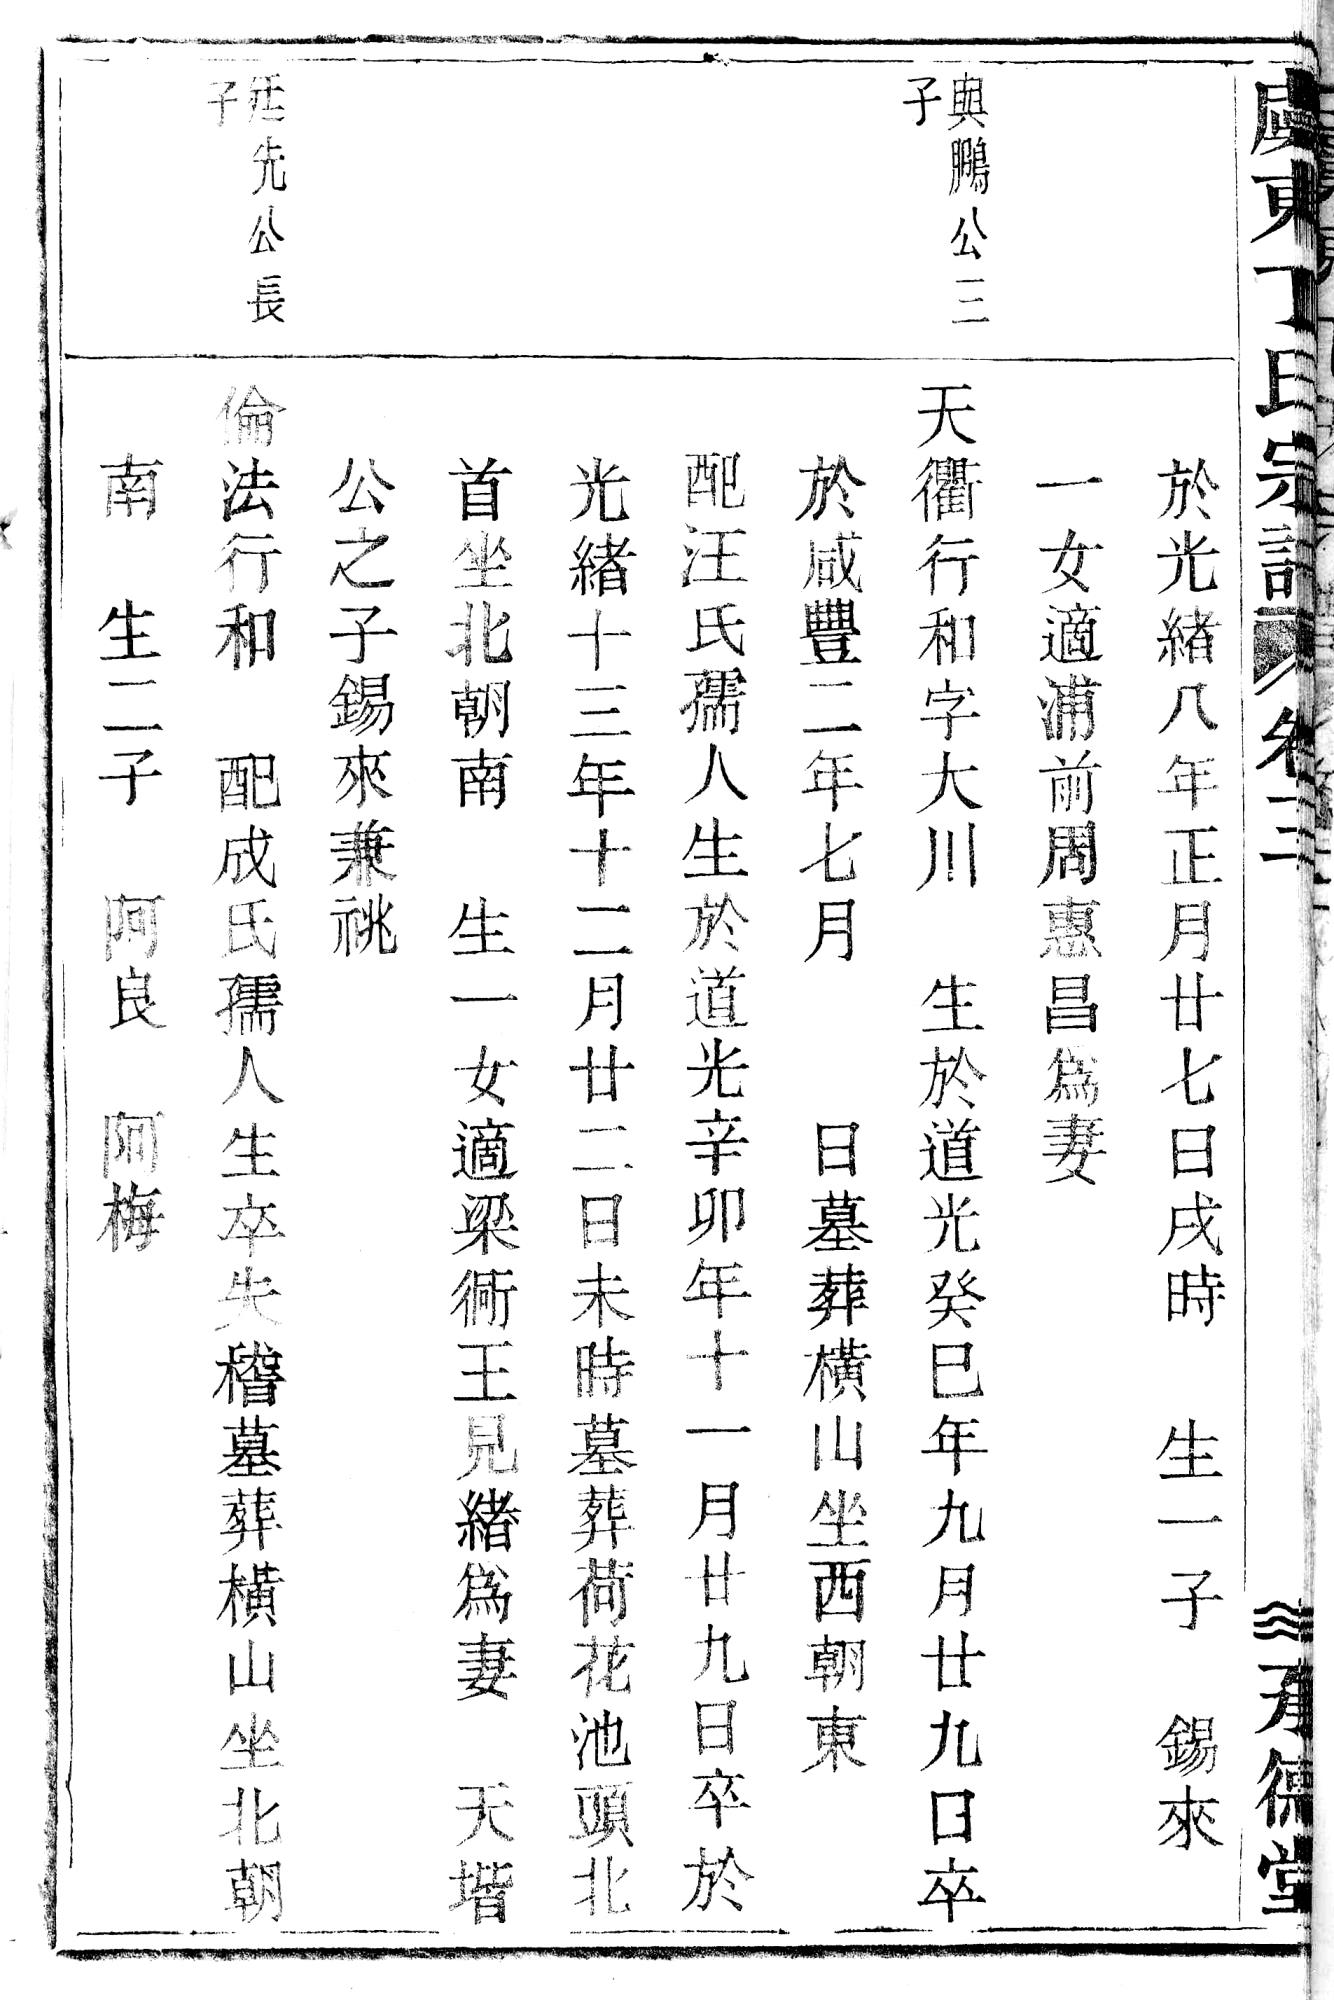 虞東丁氏宗譜 卷二 承德堂
於光緒八年正月廿七日戌時 生一子 錫來
一女適浦前周惠昌為妻
與鵬公三
子
天衢行和字大川 生於道光癸巳年九月廿九日卒
於咸豐二年七月 日墓葬橫山坐西朝東
配汪氏孺人生於道光辛卯年十一月廿九日卒於
光緒十三年十二月廿二日未時墓葬荷花池頭北
首坐北朝南 生一女適梁衖王見緒為妻 天堦
公之子錫來兼祧
廷先公長
子
倫法行和 配成氏孺人生卒失稽墓葬橫山坐北朝
南 生二子 阿良 阿梅